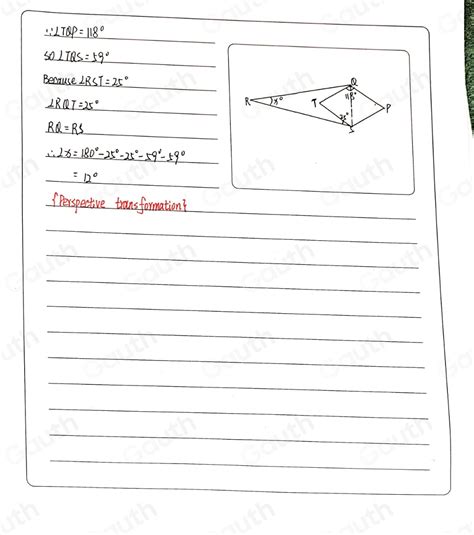 ∵∠TQP=118°
SO ∠TQS=59°
Because ∠RST=25°
∠RQT=25°
RQ=RS
∴∠x=180°-25°-25°-59°-59°
=12°
{Perspective transformation}
Q
118°
R
x°
T
P
25°
S
Gauth